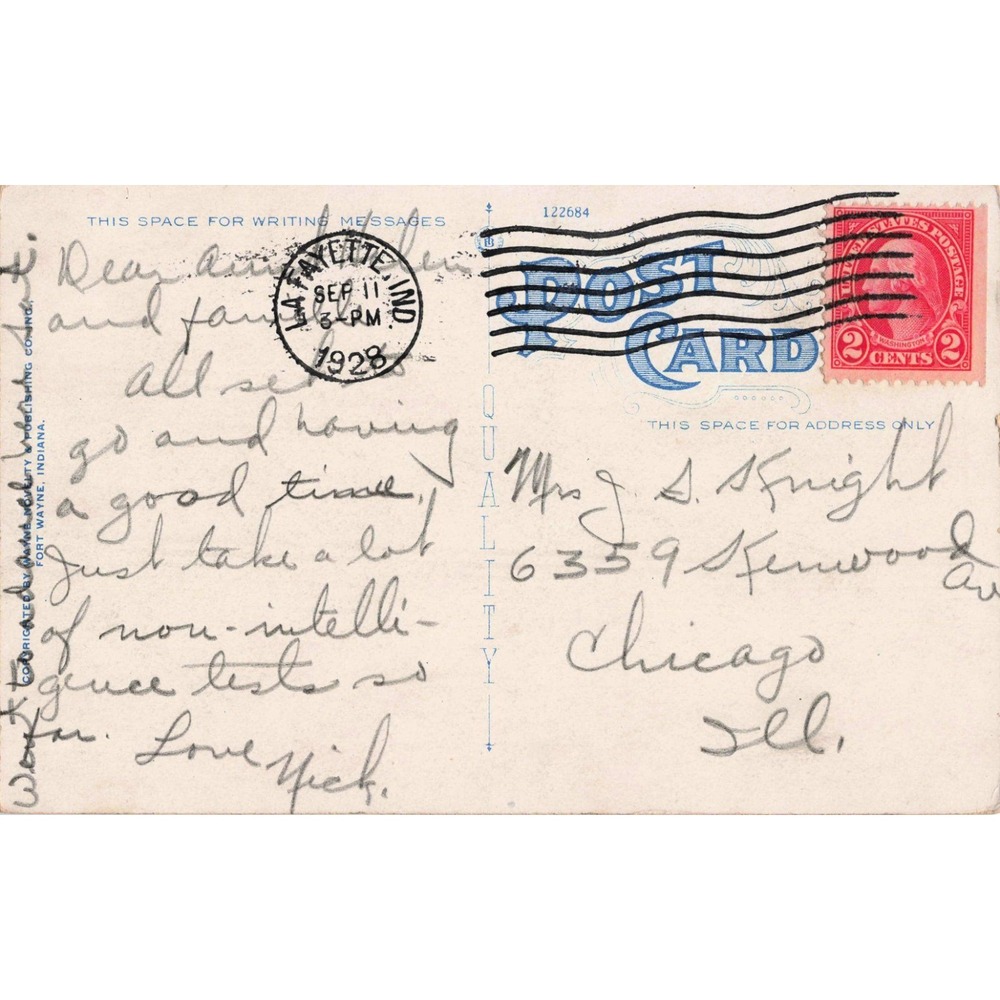 THIS SPACE FOR WRITING MESSAGES
122684
LA FAYETTE, IND.
SEP 11
3-PM
1928
UNITED STATES POSTAGE
WASHINGTON
2 CENTS 2
POST
CARD
THIS SPACE FOR ADDRESS ONLY
QUALITY
COPYRIGHTED BY WAYNE NOVELTY & PUBLISHING CO. IND.
FORT WAYNE, INDIANA.
Dear
and family
all set to
go and having
a good time,
Just take a lot
of non-intelli-
gence tests so
far.
Love
Nick.
Mrs J S. Knight
6359 Kenwood
Av
Chicago
Ill.